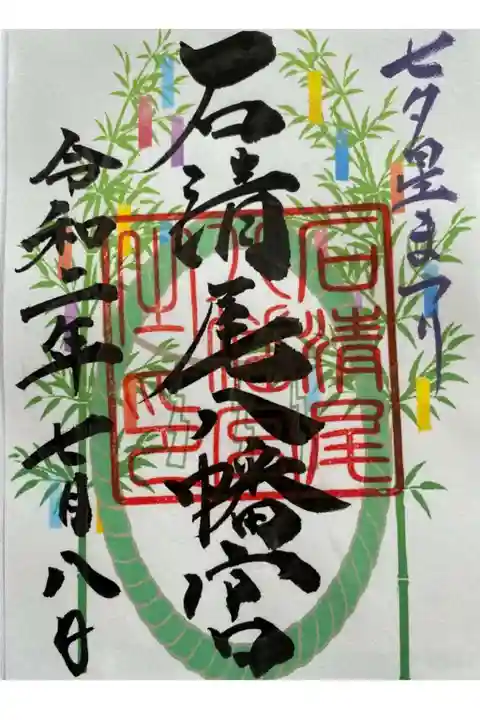 七夕星まつり
石清尾八幡宮
石清尾
八幡宮
社印
令和二年 七月八日